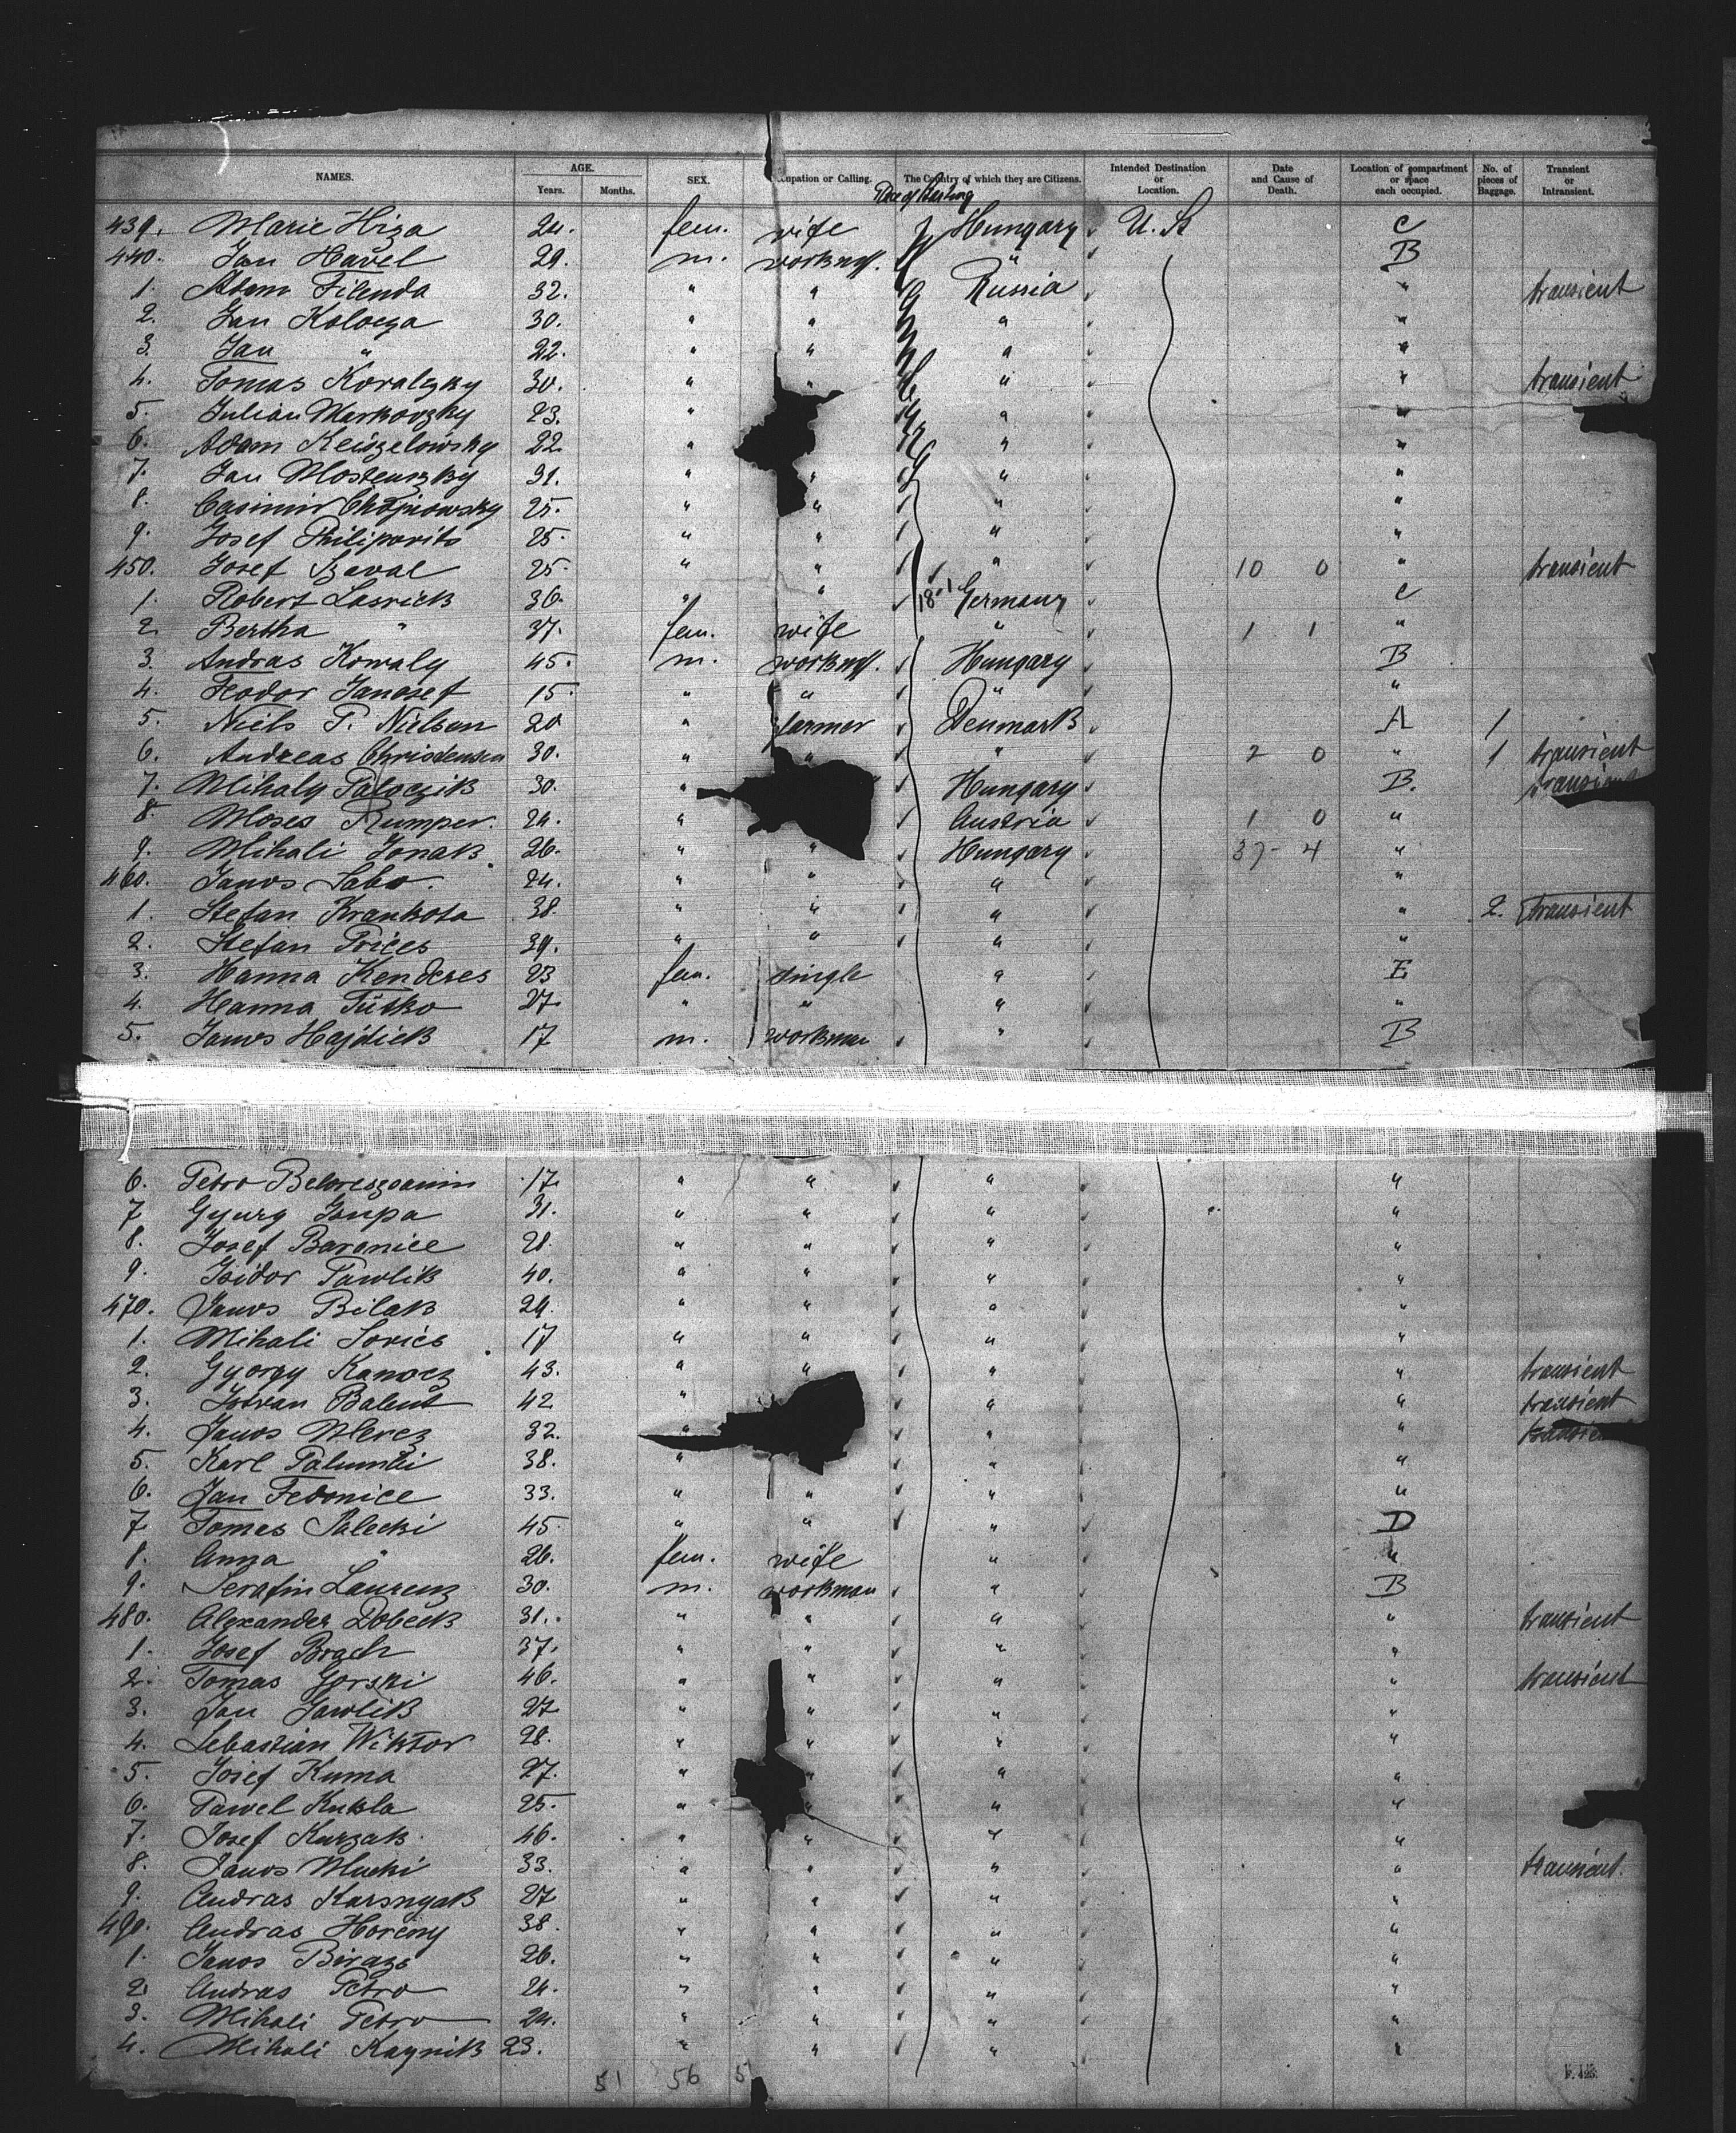 NAMES. AGE. Years. Months. SEX. cupation or Calling. The Country of which they are Citizens. Intended Destination or Location. Date and Cause of Death. Location of compartment or space each occupied. No. of pieces of Baggage. Transient or Intransient.
Place of Starting
439. Marie Hiza 24. fem. wife Hungary U. St C
440. Jan Havel 29. m. workm. " B
1. Adam Filenda 32. " " Russia " transient
2. Jan Koloeza 30. " " " "
3. Jan " 22. " " " "
4. Tomas Kovalzky 30. " " " " transient
5. Julian Markovzky 23. " " "
6. Adam Keiszelowsky 22. " " "
7. Jan Mostenzky 31. " " " "
8. Casimir Chojnowsky 25. " " " "
9. Josef Philipovits 25. " " " "
450. Josef Beval 25. " " 10 0 " transient
1. Robert Lasrick 36. " " 18 Germany C
2. Bertha " 37. fem. wife " 1 1 "
3. Andras Kowaly 45. m. workm. Hungary B
4. Feodor Janosef 15. " " " "
5. Niels P. Nielsen 20. " farmer Denmark A 1
6. Andreas Christensen 30. " " " 2 0 " 1 transient
7. Mihaly Paloczik 30. " Hungary B. transient
8. Moses Rumper. 24. " Austria 1 0 "
9. Mihali Jonak 26. " " Hungary 37 4 "
460. Janos Sabo. 24. " " " "
1. Stefan Krankota 38. " " " " 2. transient
2. Stefan Prices 39. " " " "
3. Hanna Kenderes 23 fem. single " E
4. Hanna Tutko 27. " " " "
5. Janos Hajdick 17 m. workman " B
6. Petro Belvreszoanin 17. " " " "
7 Gyurg Gnupa 31. " " " "
8. Josef Baranice 28. " " " "
9. Isidor Pawlik 40. " " " "
470. Janos Bilak 24. " " " "
1. Mihali Sovics 17 " " " "
2. Gyorgy Kanocz 43. " " " " transient
3. Istvan Balent 42. " " " transient
4. Janos Mercz 32. " " " transient
5. Karl Palumbi 38. " " "
6. Jan Fedonice 33. " " " "
7 Tomas Salecki 45. " " " D
8. Anna " 26. fem. wife " "
9. Serafin Laurenz 30. m. workman " B
480. Alexander Dobeck 31. " " " " transient
1. Josef Brach 37. " " " "
2. Tomas Gorski 46. " " " " transient
3. Jan Gawlik 27 " " " "
4. Sebastian Wiktor 28. " " " "
5. Josef Kuma 27. " " " "
6. Pawel Kukla 25. " " " "
7. Josef Kurzak 46. " " " "
8. Janos Mucki 33. " " " " transient.
9. Andras Karsnyak 27 " " " "
490. Andras Horeny 38. " " " "
1. Janos Birazs 26. " " " "
2. Andras Petro 24. " " " "
3. Mihali Petro 24. " " " "
4. Mihali Kaynik 23. " " " "
51 56 5
F. 425.